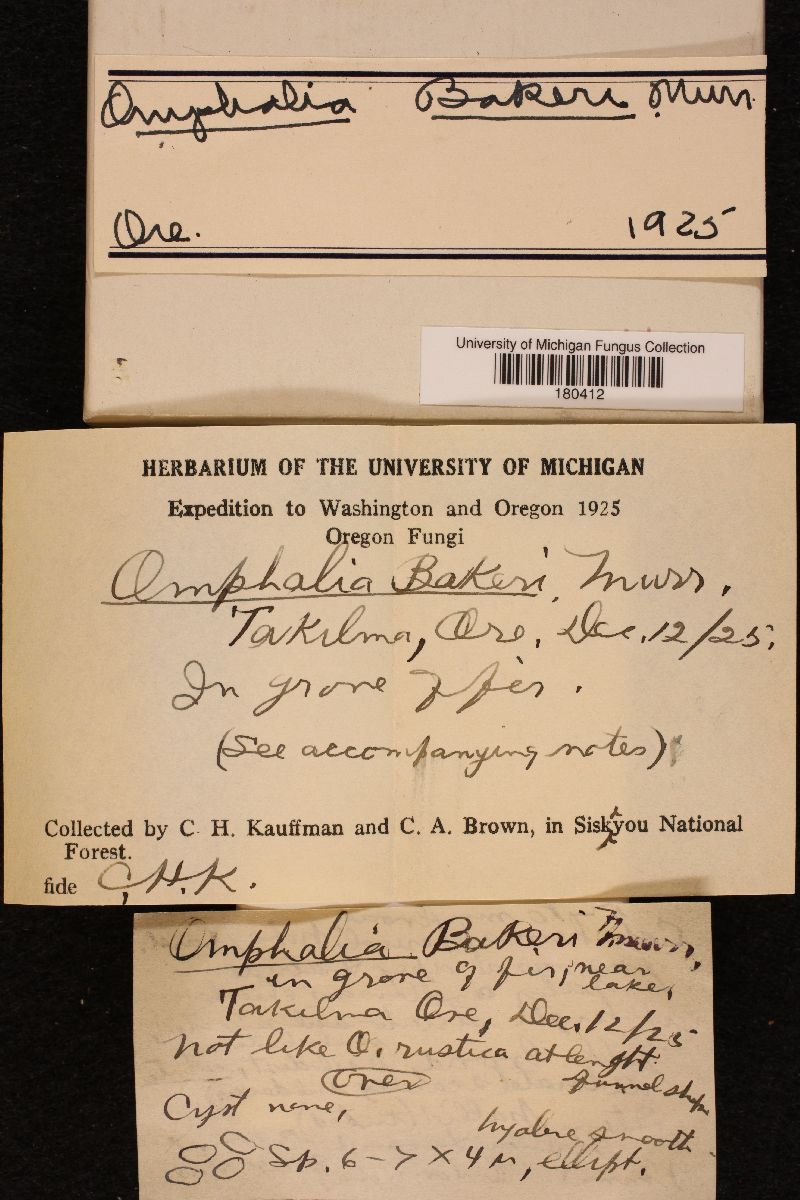 Omphalia Bakeri Murr.
Ore. 1925
University of Michigan Fungus Collection
180412
HERBARIUM OF THE UNIVERSITY OF MICHIGAN
Expedition to Washington and Oregon 1925
Oregon Fungi
Omphalia Bakeri Murr.
Takilma, Ore. Dec. 12/25.
In grove of fir.
(See accompanying notes)
Collected by C. H. Kauffman and C. A. Brown, in Siskyou National
Forest.
fide C.H.K.
Omphalia Bakeri Murr.
in grove of fir, near
lake,
Takilma Ore, Dec. 12/25
Not like O. rustica at lenght
(over) funnel shape
Cyst none,
hyaline smooth
Sp. 6-7 × 4 µ, ellipt.